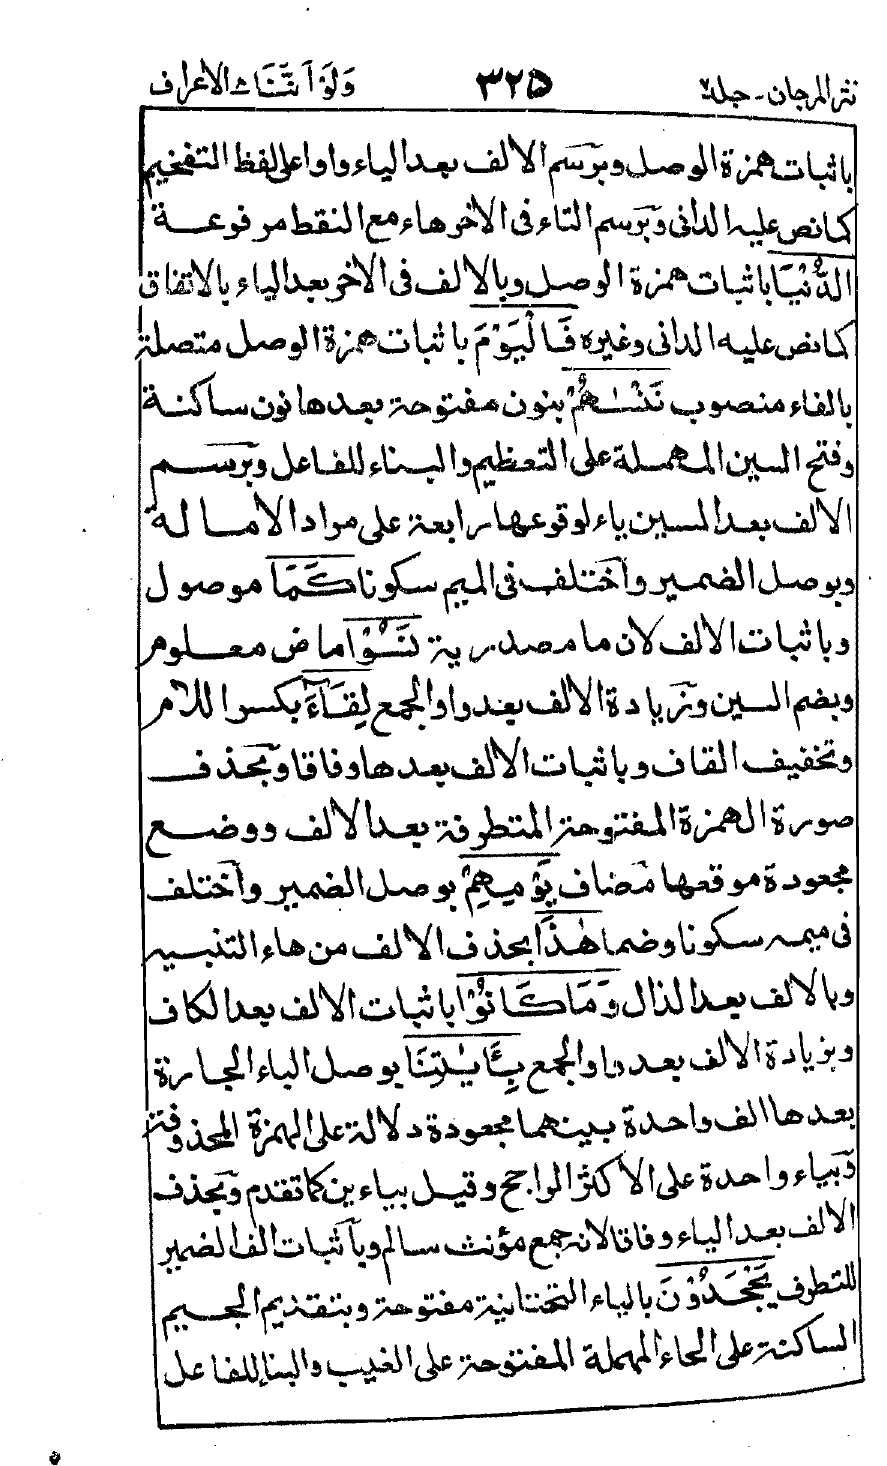 نثر المرجان - جلد٢ ٣٢٥ وَلَوْ اَنَّنَا - الاعراف
باثبات همزة الوصل وبرسم الالف بعد الياء واوا على لفظ التفخيم
كما نص عليه الدانى وبرسم التاء فى الاخر هاء مع النقط مرفوعة
الدُّنْيَا باثبات همزة الوصل وبالالف فى الاخر بعد الياء بالاتفاق
كما نص عليه الدانى وغيره فَالْيَوْمَ باثبات همزة الوصل متصلة
بالفاء منصوب نَنْسٰىهُمْ بنون مفتوحة بعدها نون ساكنة
وفتح السين المهملة على التعظيم والبناء للفاعل وبرسم
الالف بعد السين ياء لوقوعها رابعة على مراد الامالة
وبوصل الضمير واختلف فى الميم سكونا كَمَا موصول
وباثبات الالف لان ما مصدرية نَسُوْا ماض معلوم
وبضم السين وزيادة الالف بعد واو الجمع لِقَآءَ بكسر اللام
وتخفيف القاف وباثبات الالف بعدها وفاقا وبحذف
صورة الهمزة المفتوحة المتطرفة بعد الالف ووضع
مجعودة موقعها مضاف يَوْمِهِمْ بوصل الضمير واختلف
فى ميمه سكونا وضما هٰذَا بحذف الالف من هاء التنبيه
وبالالف بعد الذال وَمَا كَانُوْا باثبات الالف بعد الكاف
وبزيادة الالف بعد واو الجمع بِـَٔايٰتِنَا بوصل الباء الجارة
بعدها الف واحدة بينهما مجعودة دلالة على الهمزة المحذوفة
وبياء واحدة على الاكثر الراجح وقيل بياءين كما تقدم وبحذف
الالف بعد الياء وفاقا لانه جمع مؤنث سالم وباثبات الف الضمير
للتطرف يَجْحَدُوْنَ بالياء التحتانية مفتوحة وبتقديم الجيم
الساكنة على الحاء المهملة المفتوحة على الغيب والبناء للفاعل